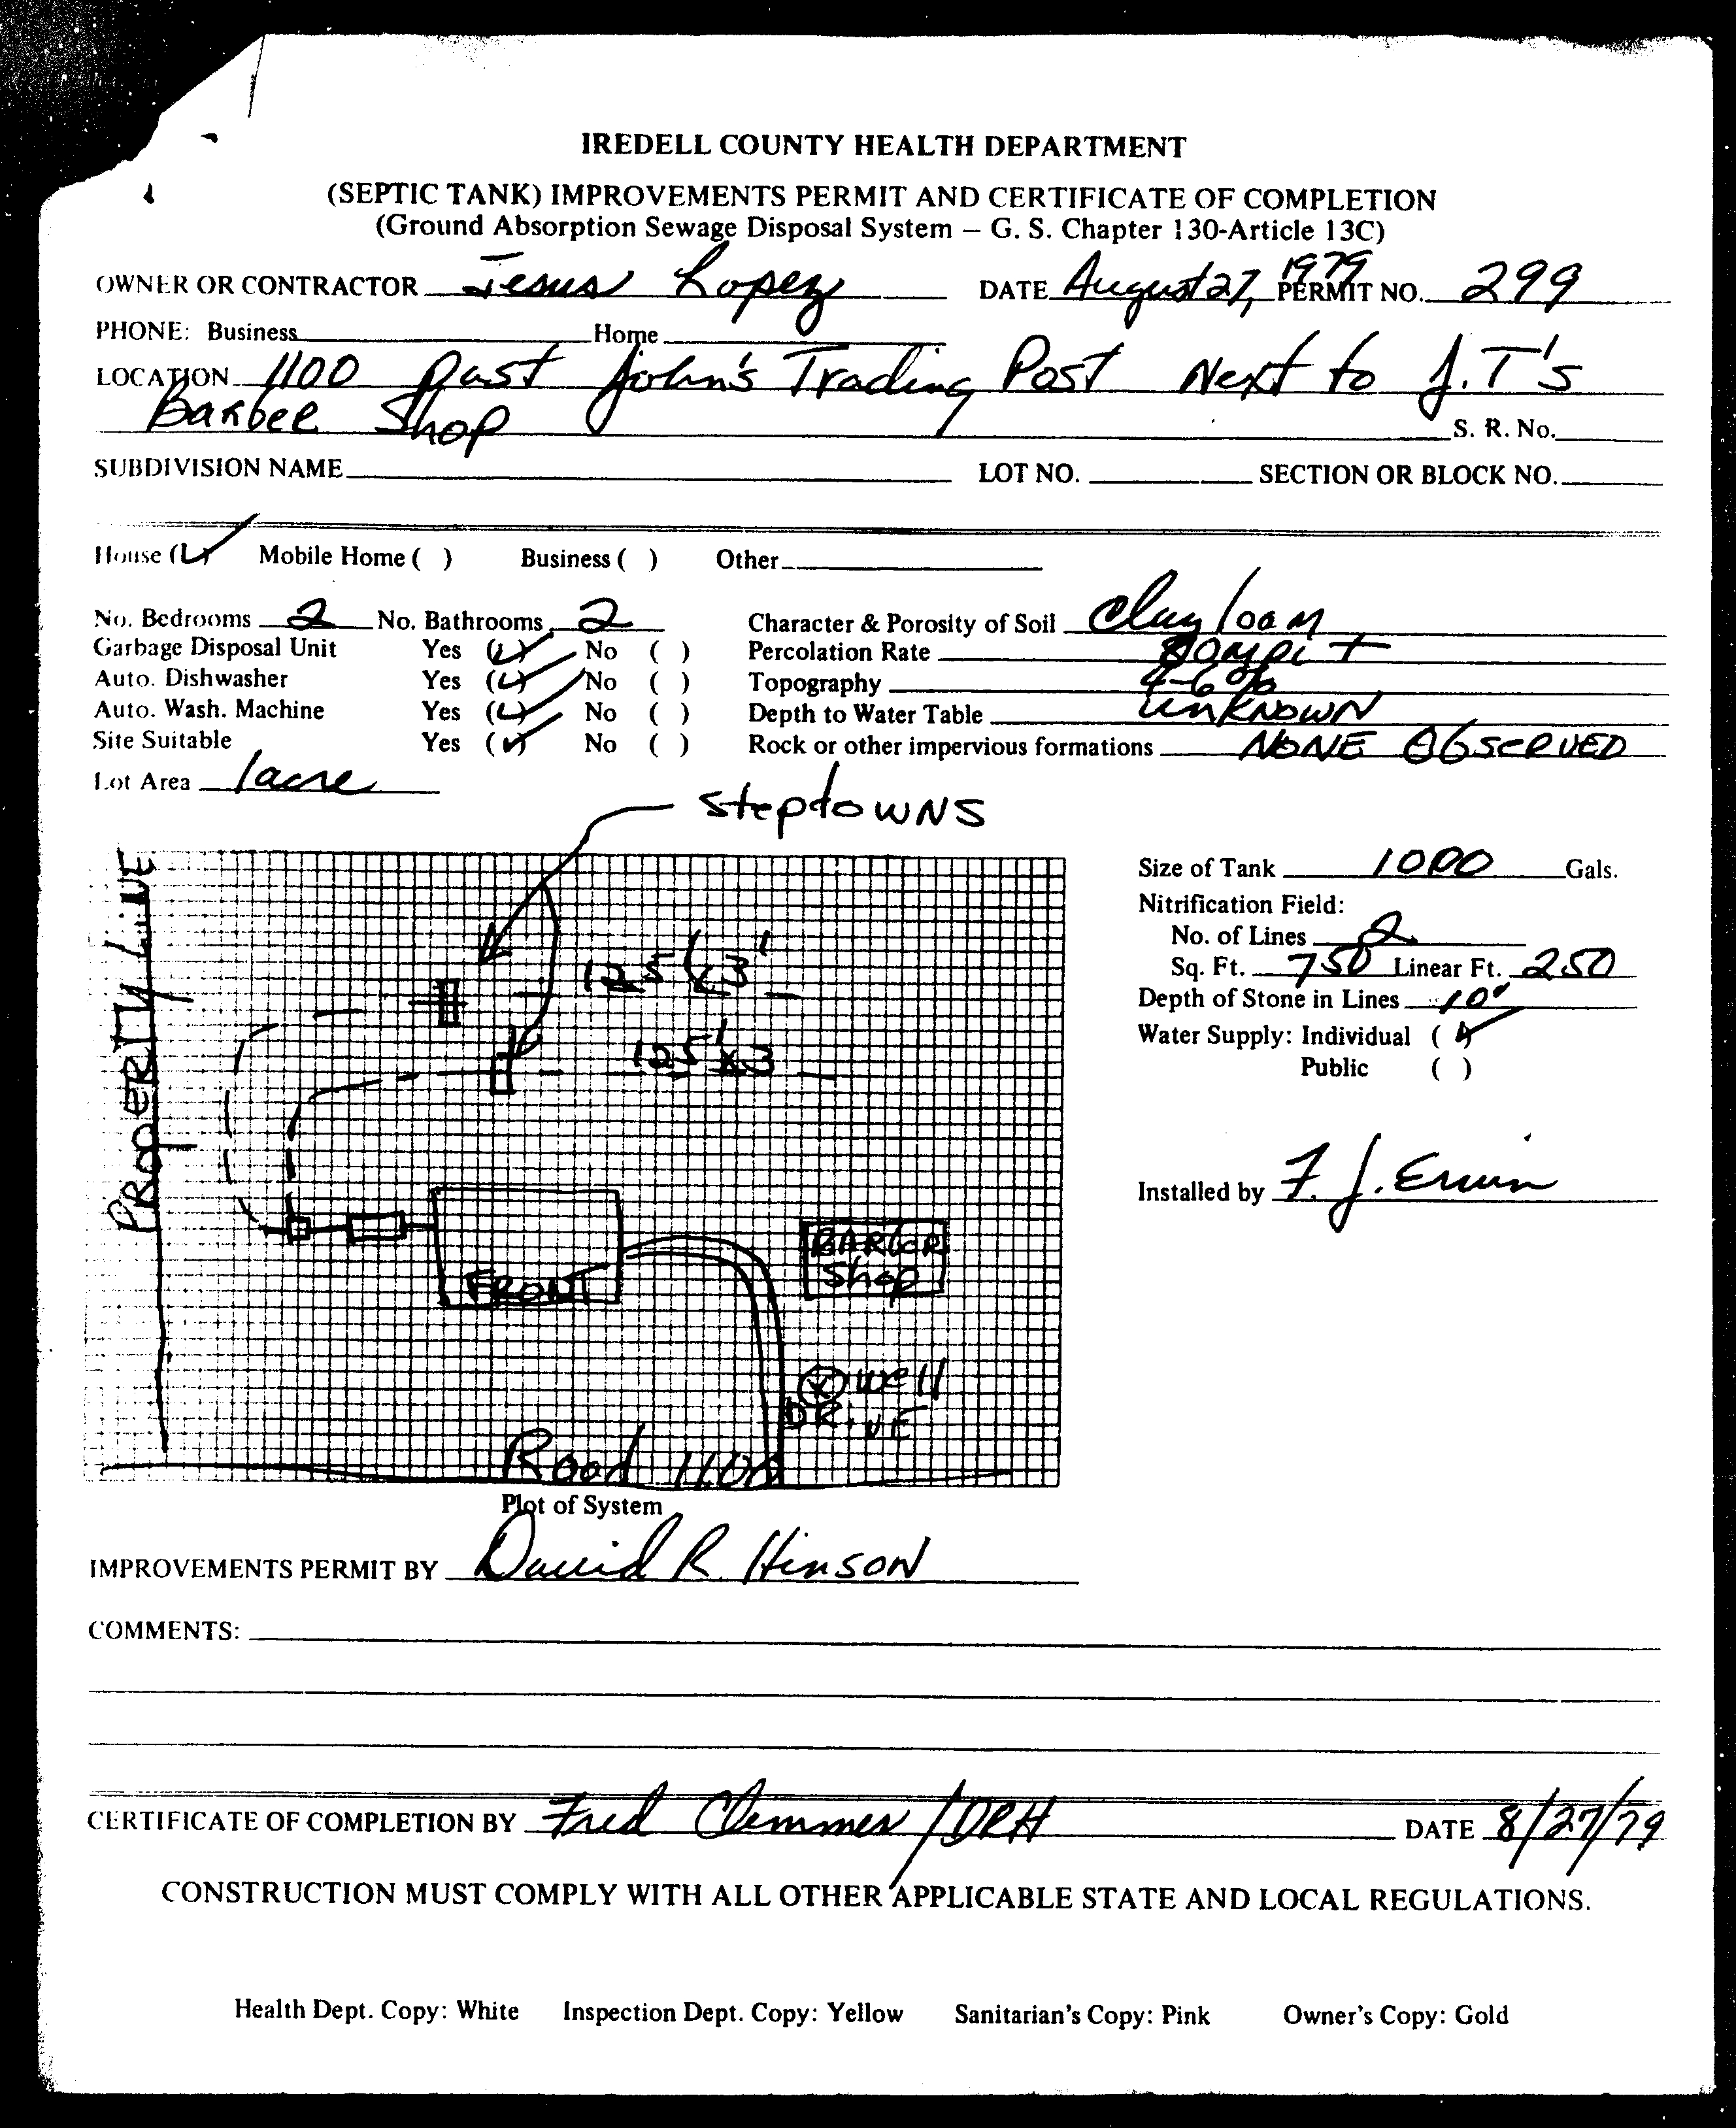 IREDELL COUNTY HEALTH DEPARTMENT
(SEPTIC TANK) IMPROVEMENTS PERMIT AND CERTIFICATE OF COMPLETION
(Ground Absorption Sewage Disposal System – G. S. Chapter 130-Article 13C)
OWNER OR CONTRACTOR Jesus Lopez DATE August 27, 1979 PERMIT NO. 299
PHONE: Business Home
LOCATION 1100 past John's Trading Post Next to J.T's
Barber Shop S. R. No.
SUBDIVISION NAME LOT NO. SECTION OR BLOCK NO.
House (✓) Mobile Home ( ) Business ( ) Other
No. Bedrooms 2 No. Bathrooms 2 Character & Porosity of Soil Clay loam
Garbage Disposal Unit Yes (✓) No ( ) Percolation Rate 80 mpi +
Auto. Dishwasher Yes (✓) No ( ) Topography 4-6%
Auto. Wash. Machine Yes (✓) No ( ) Depth to Water Table UNKNOWN
Site Suitable Yes (✓) No ( ) Rock or other impervious formations NONE OBSERVED
Lot Area 1 acre
stepdowns
PROPERTY LINE
125' x 3'
125' x 3
FRONT
BARBER
Shop
well
DRIVE
Road 1100
Plot of System
Size of Tank 1000 Gals.
Nitrification Field:
No. of Lines 2
Sq. Ft. 750 Linear Ft. 250
Depth of Stone in Lines 10"
Water Supply: Individual (✓)
Public ( )
Installed by F. J. Erwin
IMPROVEMENTS PERMIT BY David R. Hinson
COMMENTS:
CERTIFICATE OF COMPLETION BY Fred Clemmer / DRH DATE 8/27/79
CONSTRUCTION MUST COMPLY WITH ALL OTHER APPLICABLE STATE AND LOCAL REGULATIONS.
Health Dept. Copy: White Inspection Dept. Copy: Yellow Sanitarian's Copy: Pink Owner's Copy: Gold